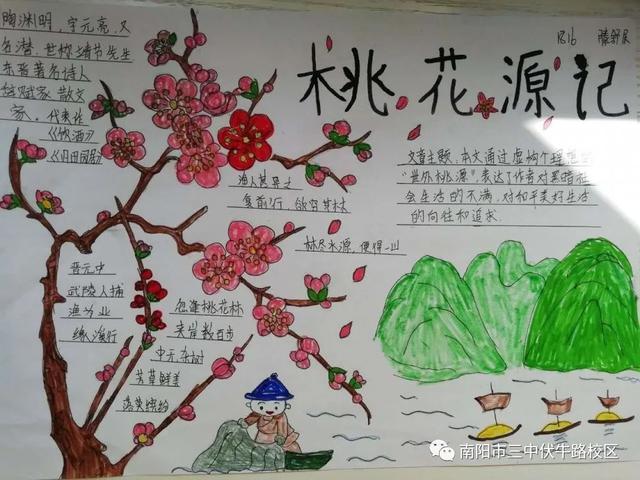 桃花源记
1216
陶渊明，字元亮，又
名潜，世称靖节先生
东晋著名诗人
辞赋家 散文
家，代表作
《饮酒》
《归田园居》
文章主题，本文通过虚构个理想的
"世外桃源"，表达了作者对黑暗社
会生活的不满，对和平美好生活
的向往和追求
渔人甚异之
复前行，欲穷其林
林尽水源，便得一山
晋元中
武陵人捕
渔为业
缘溪行
忽逢桃花林
夹岸数百步
中无杂树
芳草鲜美
落英缤纷
南阳市三中伏牛路校区